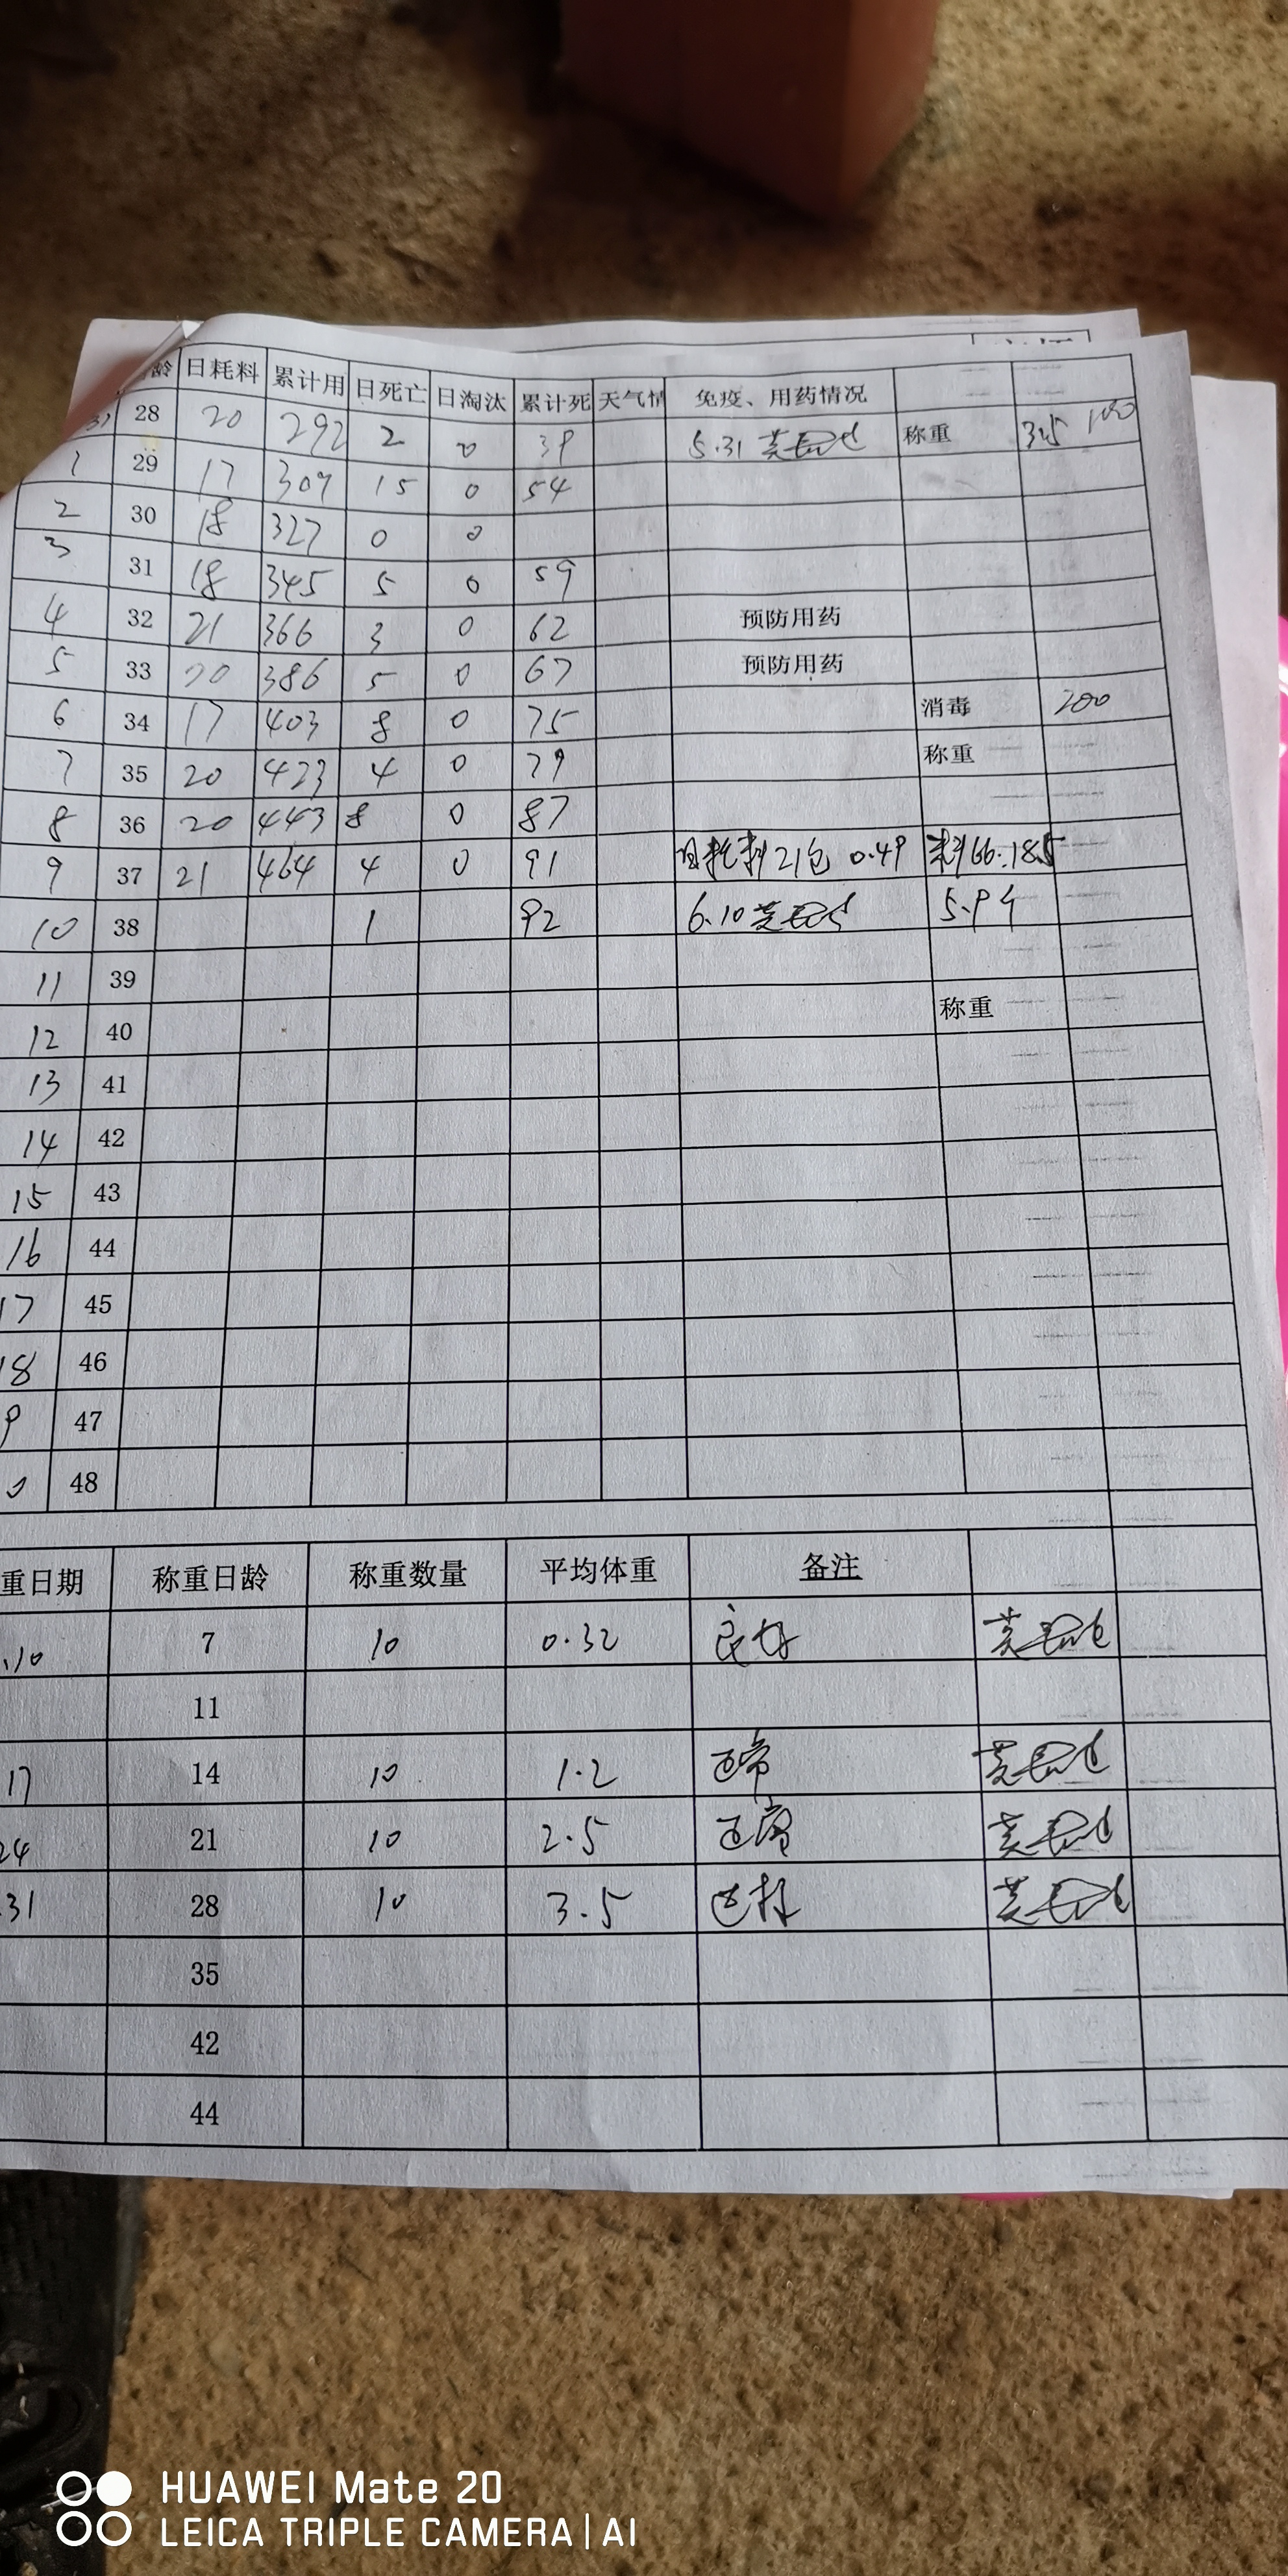 龄 日耗料 累计用 日死亡 日淘汰 累计死 天气情 免疫、用药情况
31 28 20 292 2 0 39 5.31 称重 3.5
1 29 17 309 15 0 54
2 30 18 327 0 0
3 31 18 345 5 0 59
4 32 21 366 3 0 62 预防用药
5 33 20 386 5 0 67 预防用药
6 34 17 403 8 0 75 消毒 200
7 35 20 423 4 0 79 称重
8 36 20 443 8 0 87
9 37 21 464 4 0 91 日耗料21包 0.49 料66.185
10 38 1 92 6.10
11 39
12 40 称重
13 41
14 42
15 43
16 44
17 45
18 46
9 47
0 48
重日期 称重日龄 称重数量 平均体重 备注
.10 7 10 0.32 良好
11
17 14 10 1.2 正常
24 21 10 2.5 正常
.31 28 10 3.5
35
42
44
HUAWEI Mate 20
LEICA TRIPLE CAMERA | AI